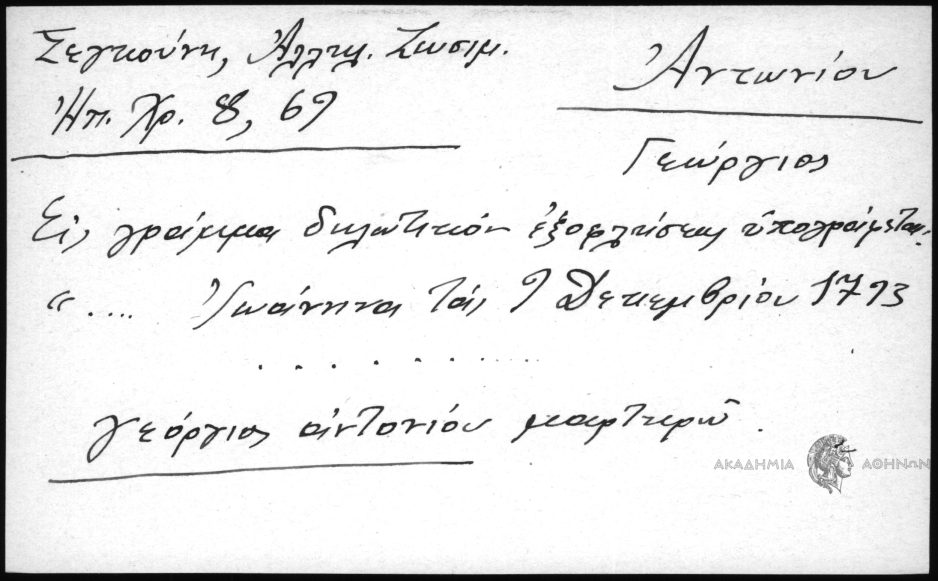 Σεγκούνη, Ἀλληλ. Ζωσιμ.
Ἠπ. Χρ. 8, 69
Ἀντωνίου
Γεώργιος
Εἰς γράμμα δηλωτικόν ἐξοφλήσεως ὑπογράφεται:
“.... Ἰωάννηνα τάς 9 Δεκεμβρίου 1793
. . . . . . . . . . .
γεόργιος ἀντονίου μαρτερῶ.
ΑΚΑΔΗΜΙΑ ΑΘΗΝΩΝ